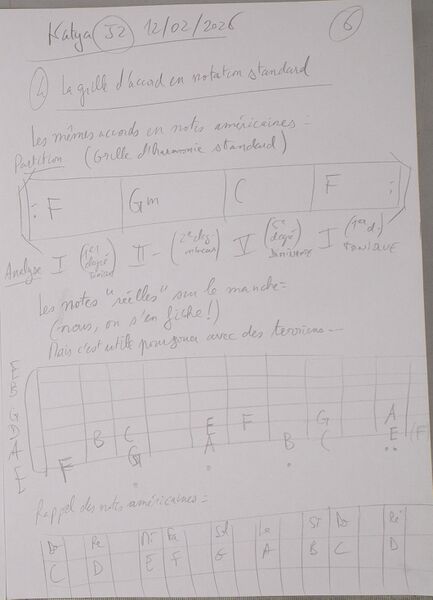 Katya 52 12/02/2026 6
4) La grille d'accord en notation standard
Les mêmes accords en notes américaines :
Partition (Grille d'harmonie standard)
: F Gm C F :
Analyse I (1er degré TONIQUE) II - (2e deg. mineur) V (5e degré DOMINANTE) I (1er d. TONIQUE)
Les notes "réelles" sur le manche :
(nous, on s'en fiche !)
Mais c'est utile pour jouer avec des terriens...
E
B
G
D
A
E
B C E F G A
F G A B C E (F
Rappel des notes américaines :
Do Ré Mi Fa Sol La Si Do Ré
C D E F G A B C D